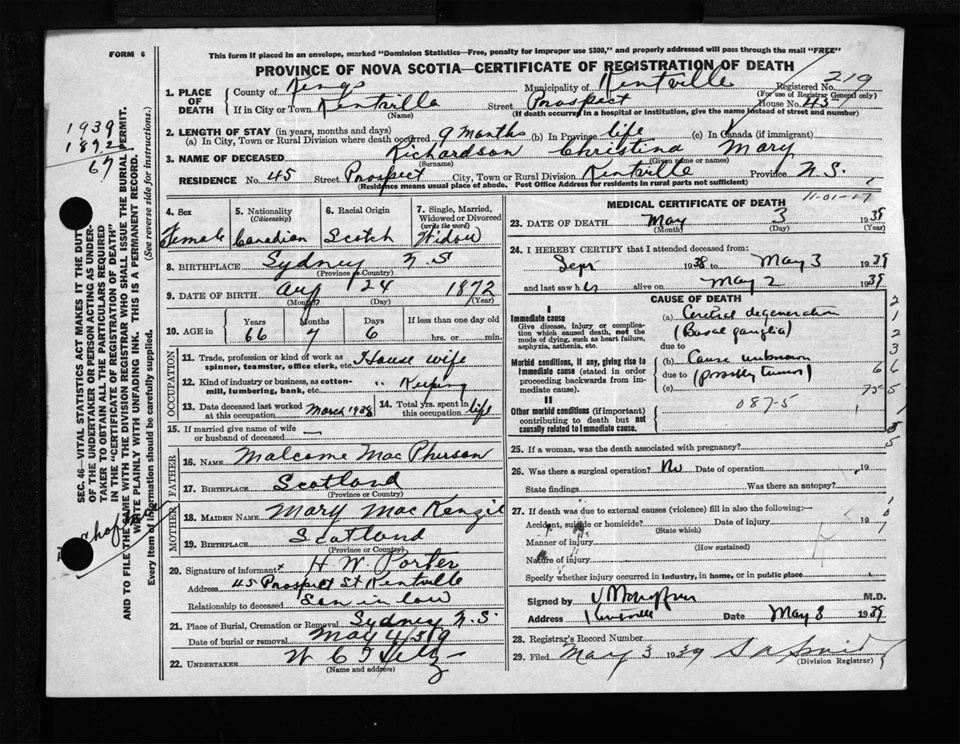 FORM 6
This form if placed in an envelope, marked "Dominion Statistics—Free, penalty for improper use $300," and properly addressed will pass through the mail "FREE"
PROVINCE OF NOVA SCOTIA—CERTIFICATE OF REGISTRATION OF DEATH
1. PLACE OF DEATH
County of Kings
Municipality of Kentville
Registered No. 219
(For use of Registrar General only)
If in City or Town Kentville
(Name)
Street Prospect
House No. 45
(If death occurred in a hospital or institution, give the name instead of street and number)
2. LENGTH OF STAY (in years, months and days)
(a) In City, Town or Rural Division where death occurred 9 months (b) In Province life (c) In Canada (if immigrant)
3. NAME OF DECEASED Richardson Christina Mary
(Surname) (Given name or names)
RESIDENCE No. 45 Street Prospect City, Town or Rural Division Kentville Province N.S.
(Residence means usual place of abode. Post Office Address for residents in rural parts not sufficient)
1939
1892
67
SEC. 46—VITAL STATISTICS ACT MAKES IT THE DUTY
OF THE UNDERTAKER OR PERSON ACTING AS UNDER-
TAKER TO OBTAIN ALL THE PARTICULARS REQUIRED
IN THE "CERTIFICATE OF REGISTRATION OF DEATH"
AND TO FILE THE SAME WITH THE DIVISION REGISTRAR WHO SHALL ISSUE THE BURIAL PERMIT.
WRITE PLAINLY WITH UNFADING INK. THIS IS A PERMANENT RECORD.
Every item of information should be carefully supplied. (See reverse side for instructions.)
4. Sex
Female
5. Nationality
(Citizenship)
Canadian
6. Racial Origin
Scotch
7. Single, Married, Widowed or Divorced
(write the word)
Widow
8. BIRTHPLACE Sydney N S
(Province or Country)
9. DATE OF BIRTH Aug 24 1872
(Month) (Day) (Year)
10. AGE in
Years Months Days If less than one day old
66 7 6 hrs. or min.
OCCUPATION
11. Trade, profession or kind of work as House wife
spinner, teamster, office clerk, etc.
12. Kind of industry or business, as cotton- " Keeping
mill, lumbering, bank, etc.
13. Date deceased last worked March 1938
at this occupation
14. Total yrs. spent in
this occupation life
15. If married give name of wife
or husband of deceased —
FATHER
16. NAME Malcome MacPherson
17. BIRTHPLACE Scotland
(Province or Country)
MOTHER
18. MAIDEN NAME Mary MacKenzie
19. BIRTHPLACE Scotland
(Province or Country)
20. Signature of informant H W Porter
Address 45 Prospect St Kentville
Relationship to deceased Son in law
21. Place of Burial, Cremation or Removal Sydney N.S.
Date of burial or removal May 4 39
22. UNDERTAKER
(Name and address)
11-01-17
MEDICAL CERTIFICATE OF DEATH
23. DATE OF DEATH May 3 1939
(Month) (Day) (Year)
24. I HEREBY CERTIFY that I attended deceased from:
Sept 1938 to May 3 1939
and last saw her alive on May 2 1939
CAUSE OF DEATH
I
Immediate cause
Give disease, injury or complica-
tion which caused death, not the
mode of dying, such as heart failure,
asphyxia, asthenia, etc.
(a) Cerebral degeneration
(Basal ganglia)
due to
Morbid conditions, if any, giving rise to
immediate cause (stated in order
proceeding backwards from im-
mediate cause).
(b) Cause unknown
due to (possibly tumor)
(c)
II
Other morbid conditions (if important)
contributing to death but not
causally related to immediate cause.
087-5
25. If a woman, was the death associated with pregnancy?
26. Was there a surgical operation? No Date of operation 19
State findings Was there an autopsy?
27. If death was due to external causes (violence) fill in also the following:—
Accident, suicide or homicide? Date of injury 19
(State which)
Manner of injury
(How sustained)
Nature of injury
Specify whether injury occurred in industry, in home, or in public place
Signed by M.D.
Address Kentville Date May 3 1939
28. Registrar's Record Number
29. Filed May 3 1939
(Division Registrar)